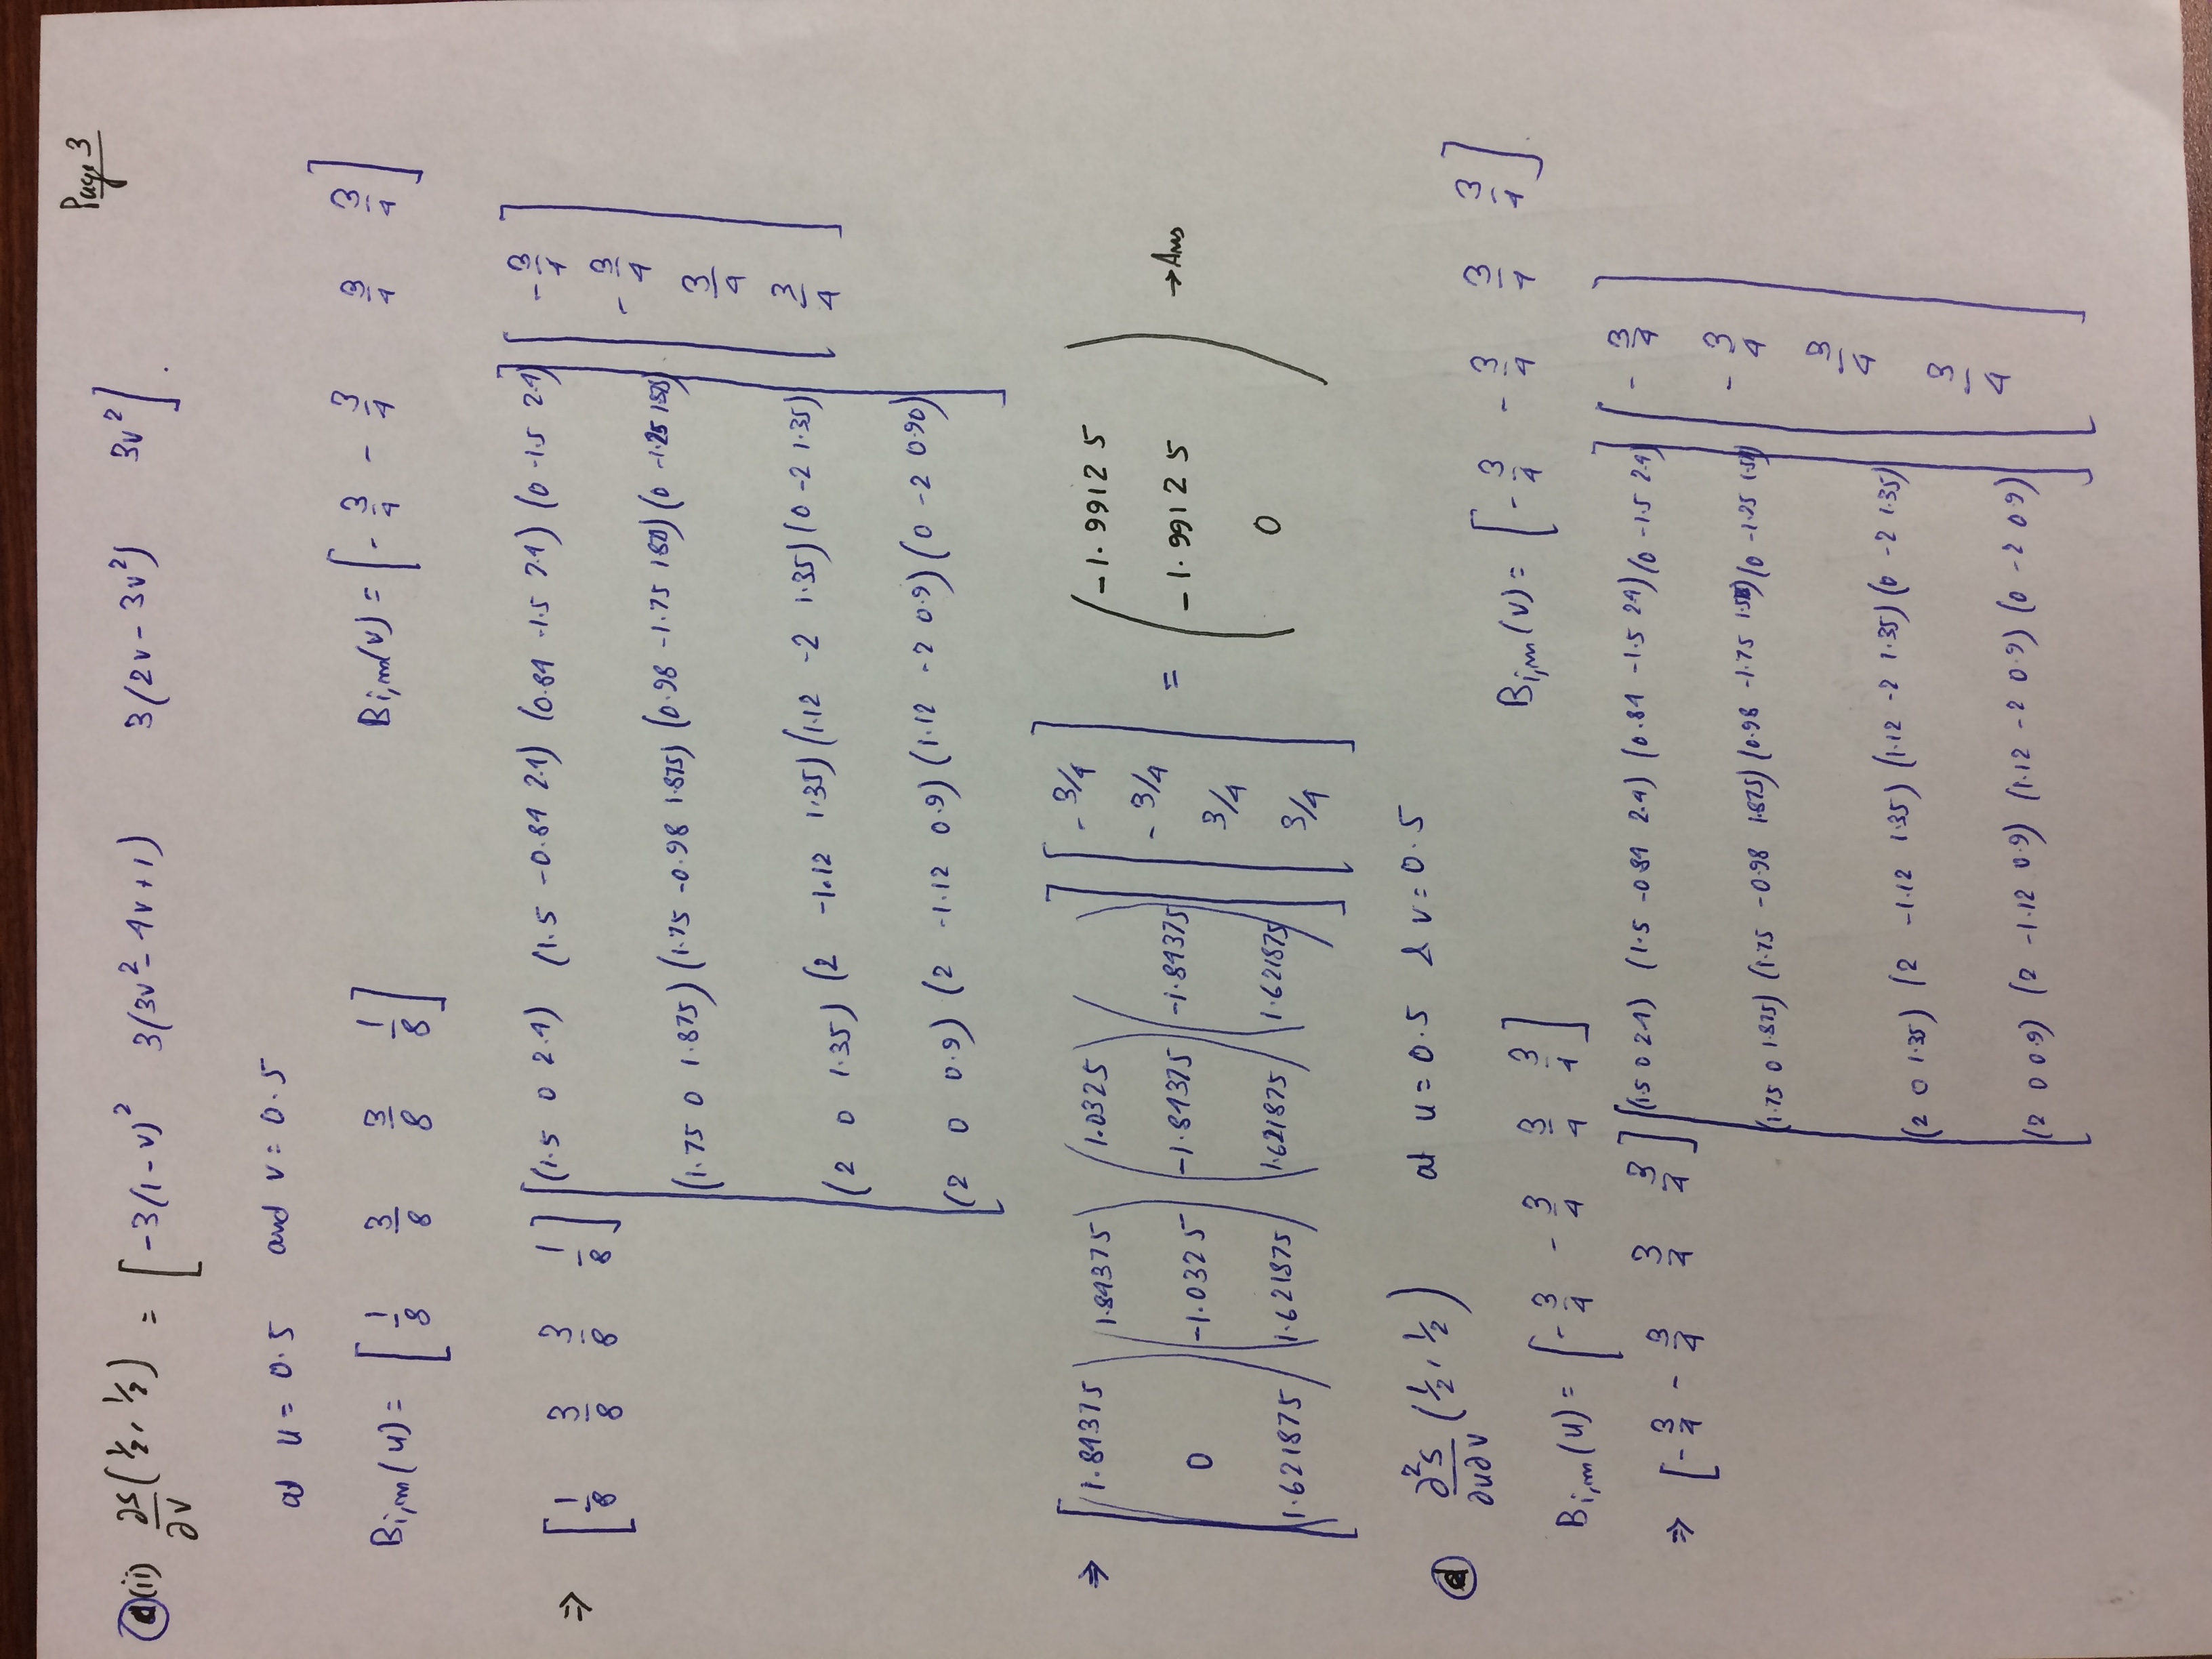 Page 3
a(ii) ∂s/∂v (½, ½) = [-3(1-v)² 3(3v²-4v+1) 3(2v-3v²) 3v²].
at u = 0.5 and v = 0.5
Bi,m(u) = [1/8 3/8 3/8 1/8] Bi,m(v) = [-3/4 -3/4 3/4 3/4]
⇒ [1/8 3/8 3/8 1/8] [(1.5 0 2.4) (1.5 -0.84 2.4) (0.84 -1.5 2.4) (0 -1.5 2.4) [-3/4
(1.75 0 1.875) (1.75 -0.98 1.875) (0.98 -1.75 (0 -3/4
(2 0 1.35) (2 -1.12 1.35) (1.12 -2 1.35) (0 -2 1.35) 3/4
(2 0 0.9) (2 -1.12 0.9) (1.12 -2 0.9) (0 -2 0.90)] 3/4]
⇒ [(1.84375 (1.84375) (1.0325) (
0 -1.0325 -1.84375 -1.84375
1.621875) 1.621875) 1.621875) 1.621875)] [-3/4 -3/4 3/4 3/4] = (-1.99125
-1.99125
0) → Ans
d ∂²s/∂u∂v (½, ½) at u = 0.5 & v = 0.5
Bi,m(u) = [-3/4 -3/4 3/4 3/4] Bi,m(v) = [-3/4 -3/4 3/4 3/4]
⇒ [-3/4 -3/4 3/4 3/4] [(1.5 0 2.4) (1.5 -0.84 2.4) (0.84 -1.5 2.4) (0 -1.5 2.4) [-3/4
(1.75 0 1.875) (1.75 -0.98 1.875) (0.98 -1.75 (0 -3/4
(2 0 1.35) (2 -1.12 1.35) (1.12 -2 1.35) (0 -2 1.35) 3/4
(2 0 0.9) (2 -1.12 0.9) (1.12 -2 0.9) (0 -2 0.9)] 3/4]